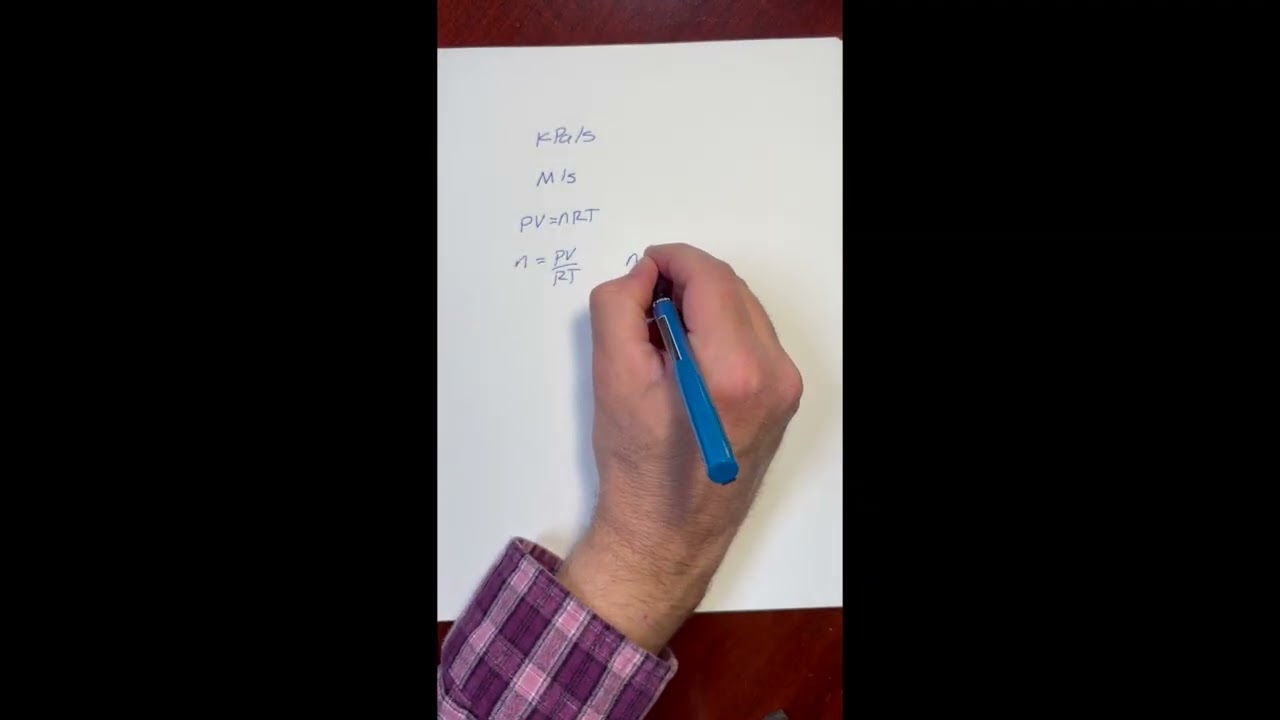 kPa/s
M/s
PV=nRT
n = PV/RT n